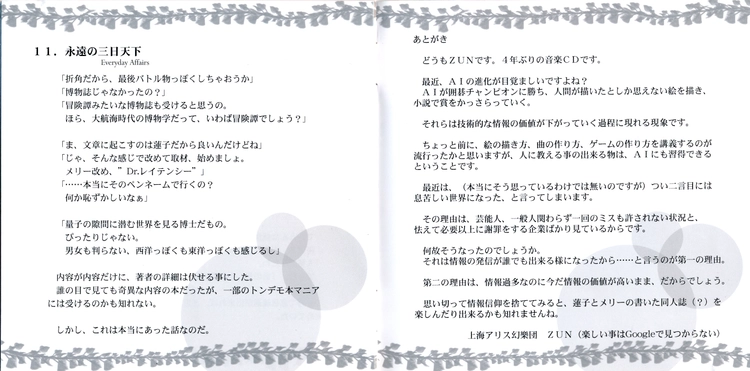 １１．永遠の三日天下
Everyday Affairs
「折角だから、最後バトル物っぽくしちゃおうか」
「博物誌じゃなかったの？」
「冒険譚みたいな博物誌も受けると思うの。
ほら、大航海時代の博物学だって、いわば冒険譚でしょう？」
「ま、文章に起こすのは蓮子だから良いんだけどね」
「じゃ、そんな感じで改めて取材、始めましょ。
メリー改め、”Dr.レイテンシー”」
「……本当にそのペンネームで行くの？
何か恥ずかしいなぁ」
「量子の隙間に潜む世界を見る博士だもの。
ぴったりじゃない。
男女も判らない、西洋っぽくも東洋っぽくも感じるし」
内容が内容だけに、著者の詳細は伏せる事にした。
誰の目で見ても奇異な内容の本だったが、一部のトンデモ本マニア
には受けるのかも知れない。
しかし、これは本当にあった話なのだ。
あとがき
どうもＺＵＮです。４年ぶりの音楽ＣＤです。
最近、ＡＩの進化が目覚ましいですよね？
ＡＩが囲碁チャンピオンに勝ち、人間が描いたとしか思えない絵を描き、
小説で賞をかっさらっていく。
それらは技術的な情報の価値が下がっていく過程に現れる現象です。
ちょっと前に、絵の描き方、曲の作り方、ゲームの作り方を講義するのが
流行ったかと思いますが、人に教える事の出来る物は、ＡＩにも習得できる
ということです。
最近は、（本当にそう思っているわけでは無いのですが）つい二言目には
息苦しい世界になった、と言ってしまいます。
その理由は、芸能人、一般人関わらず一回のミスも許されない状況と、
怯えて必要以上に謝罪をする企業ばかり見ているからです。
何故そうなったのでしょうか。
それは情報の発信が誰でも出来る様になったから……と言うのが第一の理由。
第二の理由は、情報過多なのに今だ情報の価値が高いまま、だからでしょう。
思い切って情報信仰を捨ててみると、蓮子とメリーの書いた同人誌（？）を
楽しんだり出来るかも知れませんね。
上海アリス幻樂団　ＺＵＮ（楽しい事はGoogleで見つからない）